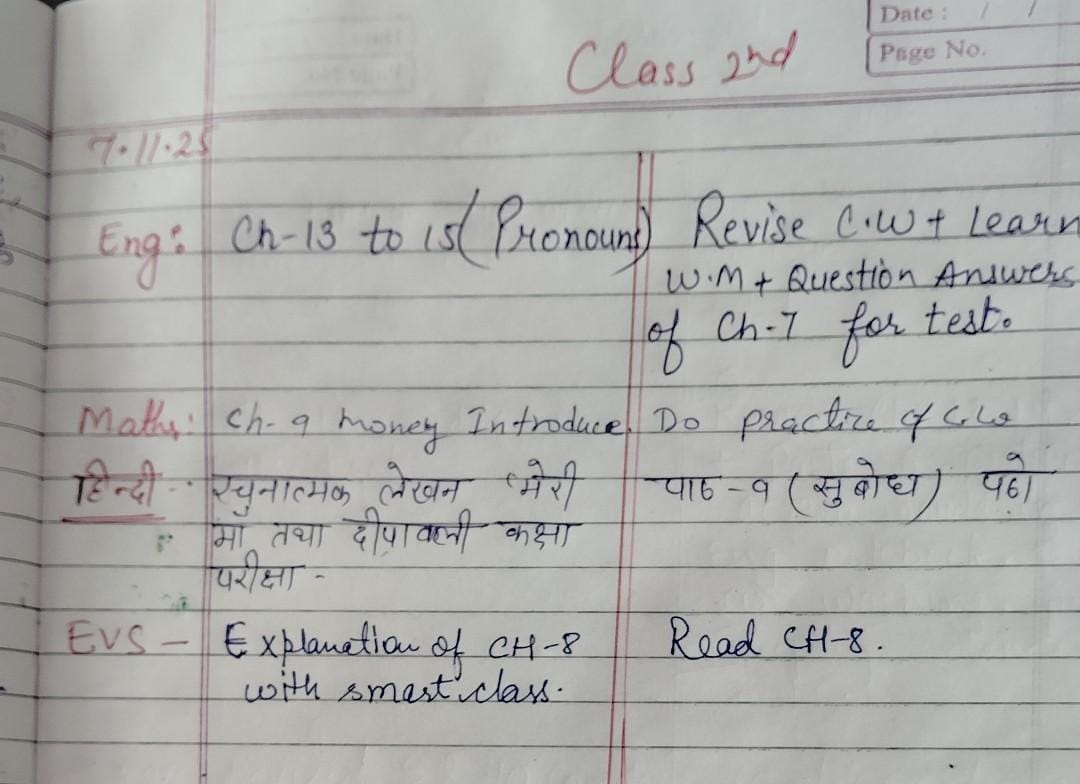 Date : / /
Page No.
Class 2nd
7.11.25
Eng: Ch-13 to 15 (Pronouns) Revise C.W + Learn
W.M + Question Answers
of Ch-7 for test.
Maths: Ch-9 money Introduce. Do practice of C.W
हिन्दी - रचनात्मक लेखन 'मेरी पाठ -९ (सुबोध) पढो
मा तथा दीपावली कक्षा
परीक्षा -
EVS - Explanation of CH-8 Read CH-8.
with smart class.